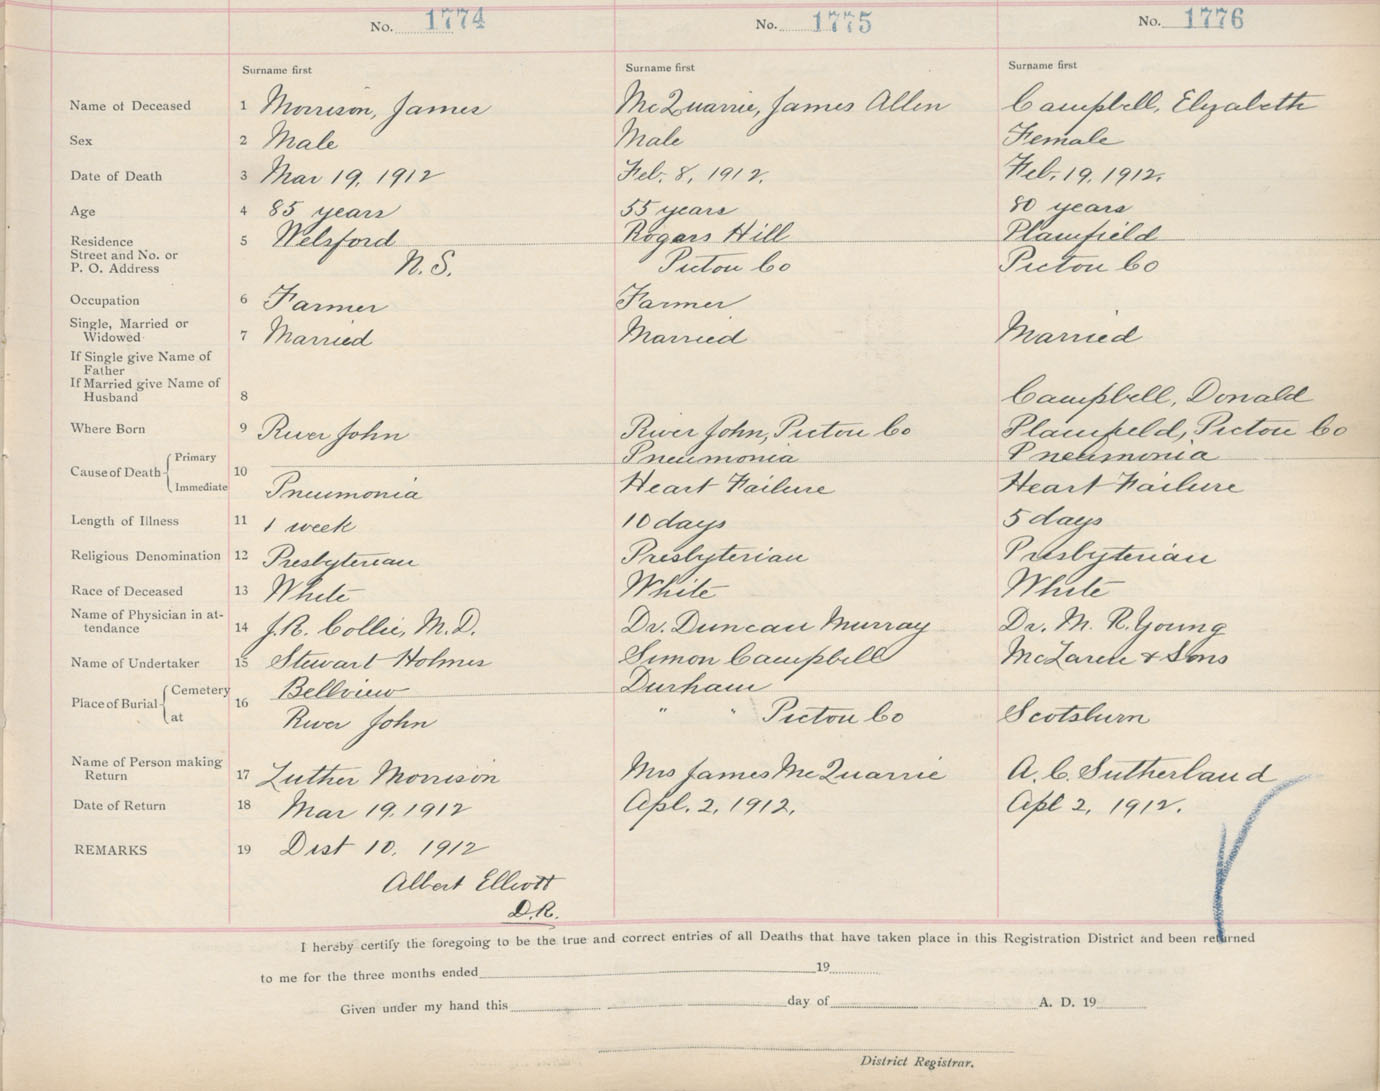 No. 1774 No. 1775 No. 1776
Surname first Surname first Surname first
Name of Deceased 1 Morrison, James McQuarrie, James Allen Campbell, Elizabeth
Sex 2 Male Male Female
Date of Death 3 Mar 19, 1912 Feb. 8, 1912. Feb. 19, 1912.
Age 4 85 years 55 years 80 years
Residence 5 Welsford Rogers Hill Plainfield
Street and No. or
P. O. Address N. S. Pictou Co Pictou Co
Occupation 6 Farmer Farmer
Single, Married or
Widowed 7 Married Married Married
If Single give Name of
Father
If Married give Name of
Husband 8 Campbell, Donald
Where Born 9 River John River John, Pictou Co Plainfield, Pictou Co
Cause of Death Primary 10 Pneumonia Pneumonia
Immediate Pneumonia Heart Failure Heart Failure
Length of Illness 11 1 week 10 days 5 days
Religious Denomination 12 Presbyterian Presbyterian Presbyterian
Race of Deceased 13 White White White
Name of Physician in at-
tendance 14 J. R. Collie, M. D. Dr. Duncan Murray Dr. M. R. Young
Name of Undertaker 15 Stewart Holmes Simon Campbell McLaren & Sons
Place of Burial Cemetery 16 Bellview Durham
at River John " " Pictou Co Scotsburn
Name of Person making
Return 17 Luther Morrison Mrs James McQuarrie A. C. Sutherland
Date of Return 18 Mar 19, 1912 Apl. 2, 1912. Apl 2, 1912.
REMARKS 19 Dist 10, 1912
Albert Elliott
D.R.
I hereby certify the foregoing to be the true and correct entries of all Deaths that have taken place in this Registration District and been returned
to me for the three months ended 19
Given under my hand this day of A. D. 19
District Registrar.